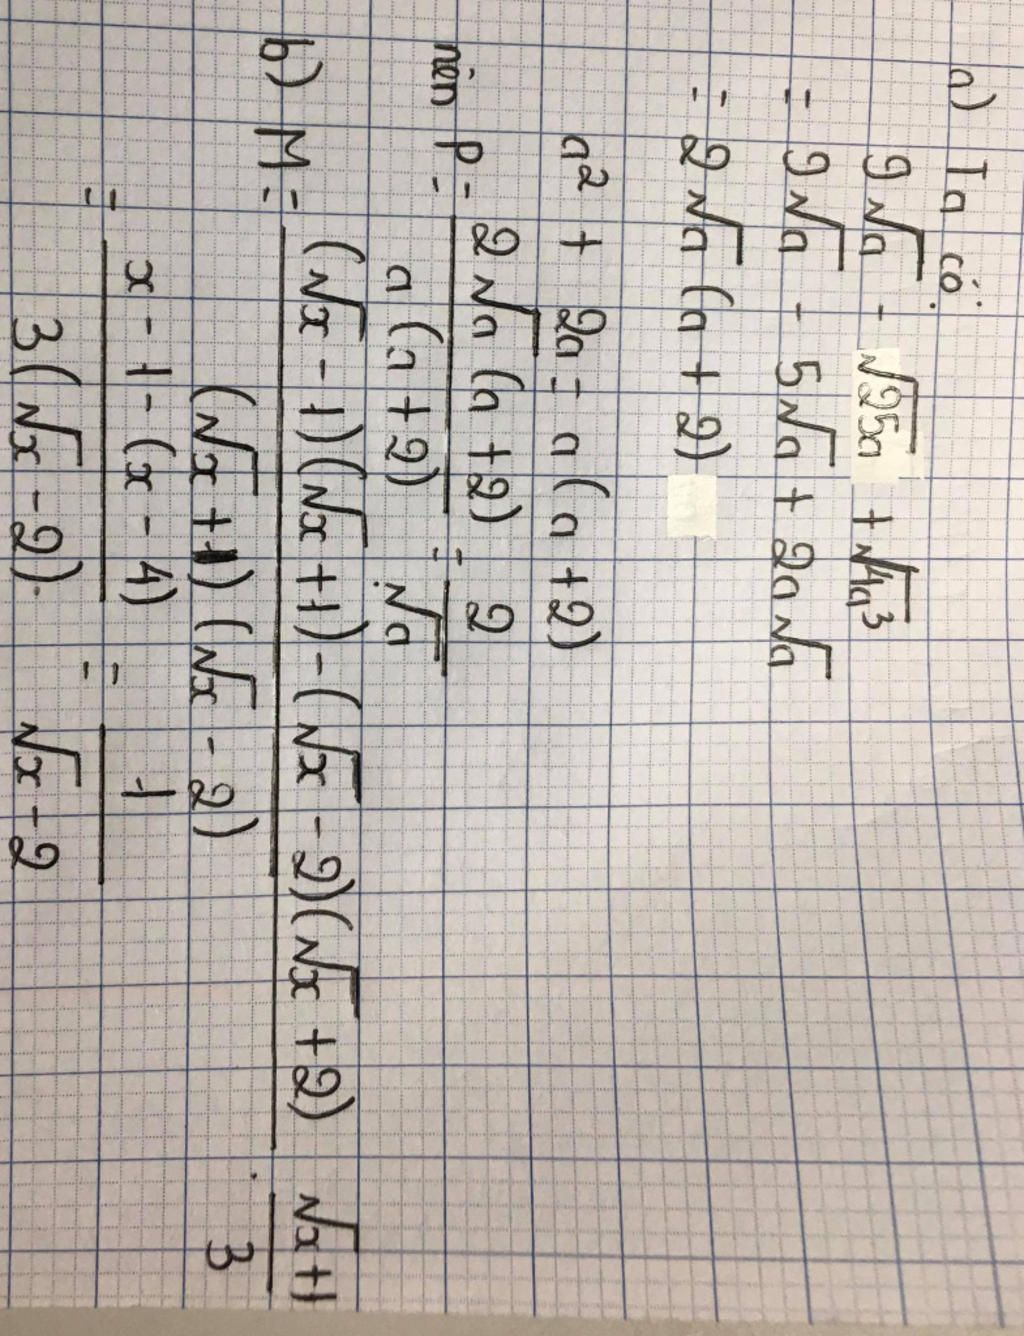 a) Ta có:
9√a - √25a + √4a³
= 9√a - 5√a + 2a√a
= 2√a (a + 2)
a² + 2a = a (a + 2)
nên P = 2√a (a + 2) / a (a + 2) = 2 / √a
b) M = (√x - 1)(√x + 1) - (√x - 2)(√x + 2) / (√x + 1) (√x - 2) . √x + 1 / 3
= x - 1 - (x - 4) / 3(√x - 2) = 1 / √x - 2